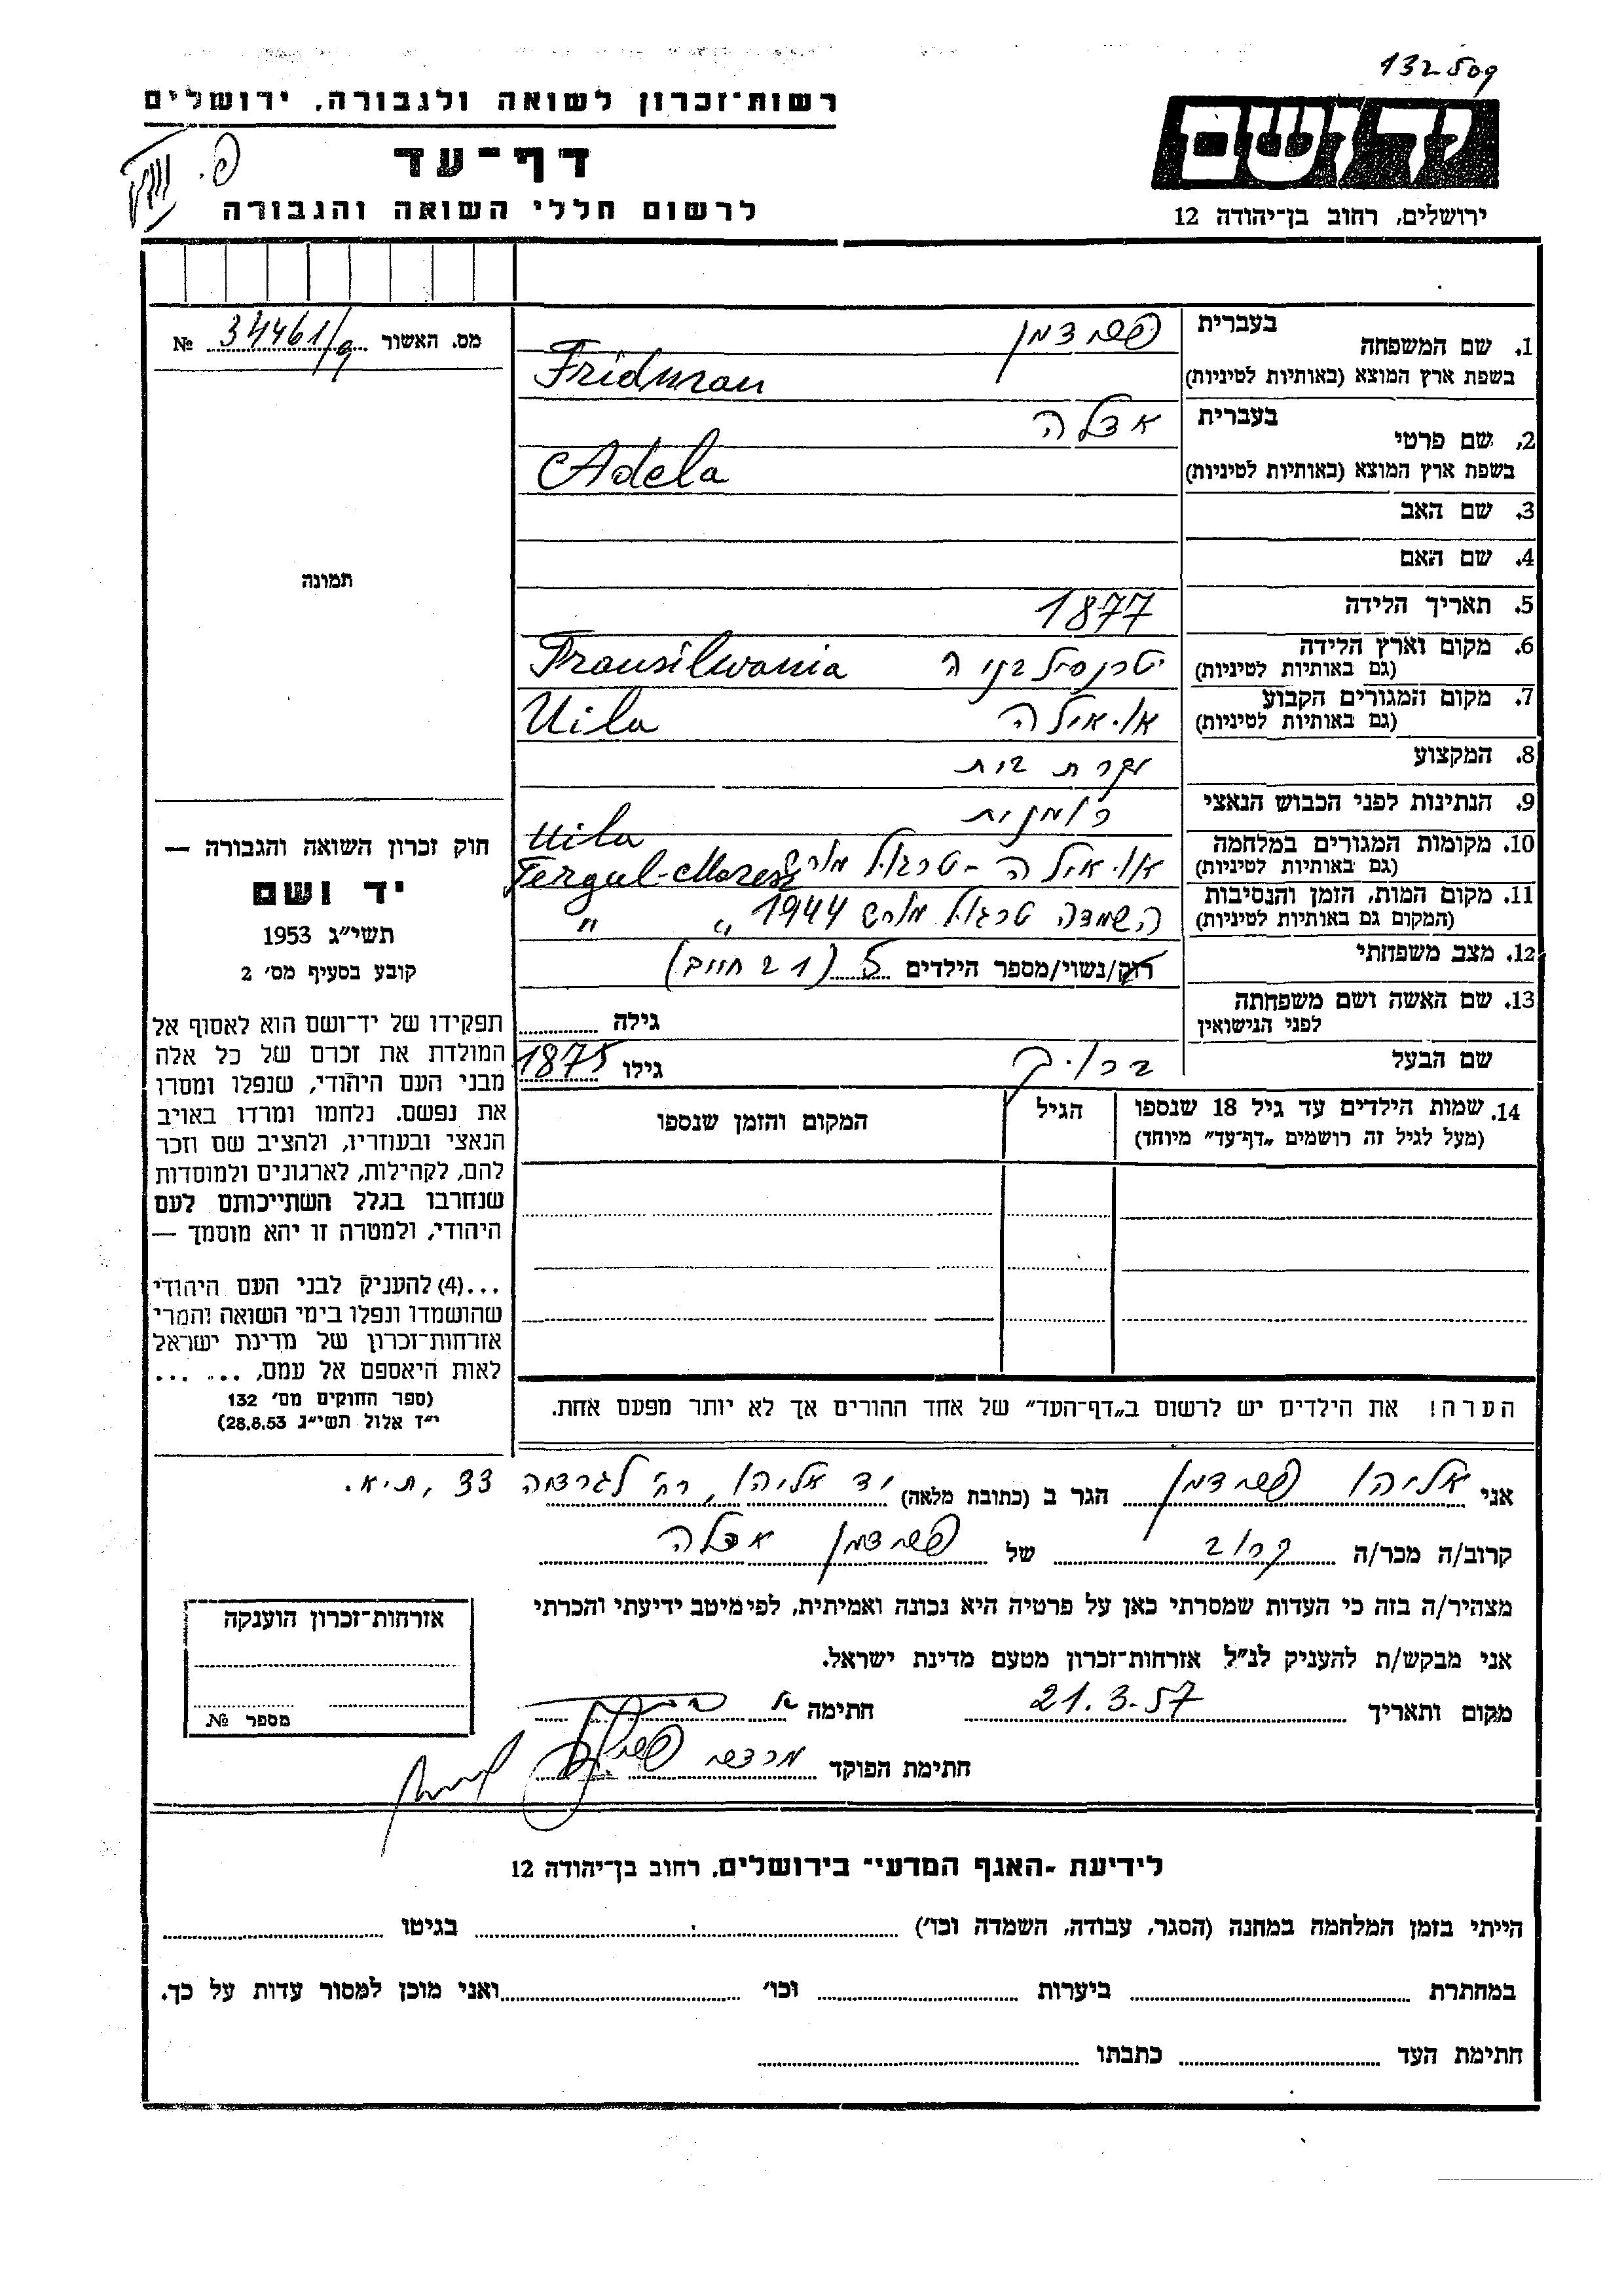 132509
רשות־זכרון לשואה ולגבורה, ירושלים
דף־עד
לרשום חללי השואה והגבורה
פ.
יד ושם
ירושלים, רחוב בן־יהודה 12
מס. האשור 34461/9 №
1. שם המשפחה
בעברית
פרידמן
בשפת ארץ המוצא (באותיות לטיניות)
Fridman
2. שם פרטי
בעברית
אדלה
בשפת ארץ המוצא (באותיות לטיניות)
Adela
3. שם האב
4. שם האם
תמונה
5. תאריך הלידה 1877
6. מקום וארץ הלידה
(גם באותיות לטיניות)
טרנסילבניה Transilwania
7. מקום המגורים הקבוע
(גם באותיות לטיניות)
או.אילה Uila
8. המקצוע עקרת בית
9. הנתינות לפני הכבוש הנאצי רומנית
10. מקומות המגורים במלחמה
(גם באותיות לטיניות)
Uila
או.אילה - טרגול מורש Tergul-Moresz
11. מקום המות, הזמן והנסיבות
(המקום גם באותיות לטיניות)
השמדה טרגול מורש 1944 " "
12. מצב משפחתי
רוק/נשוי/מספר הילדים 5 (2 בחיים)
13. שם האשה ושם משפחתה
לפני הנישואין
גילה
שם הבעל ברוך גילו 1875
14. שמות הילדים עד גיל 18 שנספו
(מעל לגיל זה רושמים „דף־עד" מיוחד)
הגיל
המקום והזמן שנספו
הערה! את הילדים יש לרשום ב„דף־העד" של אחד ההורים אך לא יותר מפעם אחת.
חוק זכרון השואה והגבורה —
יד ושם
תשי"ג 1953
קובע בסעיף מס' 2
תפקידו של יד־ושם הוא לאסוף אל
המולדת את זכרם של כל אלה
מבני העם היהודי, שנפלו ומסרו
את נפשם. נלחמו ומרדו באויב
הנאצי ובעוזריו, ולהציב שם וזכר
להם, לקהילות, לארגונים ולמוסדות
שנחרבו בגלל השתייכותם לעם
היהודי, ולמטרה זו יהא מוסמך —
...(4) להעניק לבני העם היהודי
שהושמדו ונפלו בימי השואה והמרי
אזרחות־זכרון של מדינת ישראל
לאות היאספם אל עמם, ... ...
(ספר החוקים מס' 132
י"ד אלול תשי"ג 28.8.53)
אני אליהו פרידמן הגר ב (כתובת מלאה) יד אליהו, רח' לגרדיה 33, ת.א.
קרוב/ה מכר/ה קרוב של פרידמן אדלה
מצהיר/ה בזה כי העדות שמסרתי כאן על פרטיה היא נכונה ואמיתית, לפי מיטב ידיעתי והכרתי
אני מבקש/ת להעניק לנ"ל אזרחות־זכרון מטעם מדינת ישראל.
מקום ותאריך 21.3.57 חתימה
חתימת הפוקד מרדכי
אזרחות־זכרון הוענקה
מספר №
לידיעת „האגף המדעי" בירושלים, רחוב בן־יהודה 12
הייתי בזמן המלחמה במחנה (הסגר, עבודה, השמדה וכו') בגיטו
במחתרת ביערות וכו' ואני מוכן למסור עדות על כך.
חתימת העד כתבתו